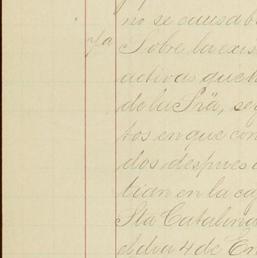 no se causa b
ya
Sobre la exis
activas que h
de la Srā, se
tos en que con
dos despues
tian en la ca
Sta Catalina
el dia 4 de En